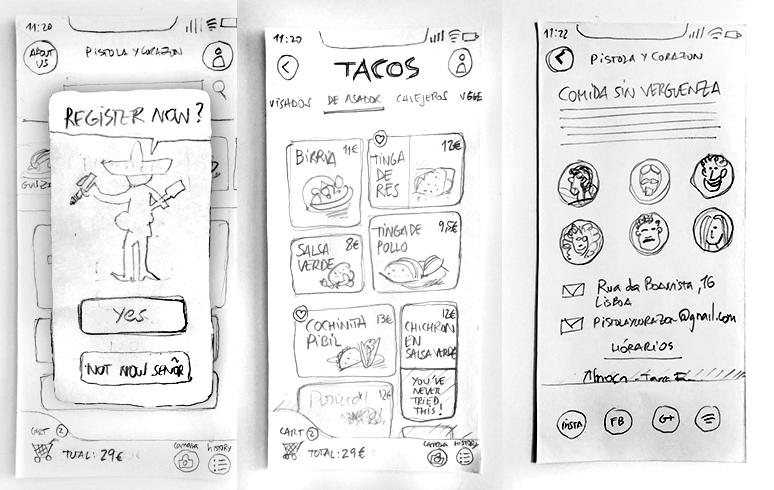 11:20
ABOUT US
PISTOLA Y CORAZON
REGISTER NOW?
YES
NOT NOW SEÑOR
CART 2
TOTAL: 29€
CAMERA
HISTORY
11:20
TACOS
GUISADOS
DE ASADOR
CALLEJEROS
VEGE
BIRRIA 11€
TINGA DE RES 12€
SALSA VERDE 8€
TINGA DE POLLO 9,5€
COCHINITA PIBIL 13€
12€
CHICHRON EN SALSA VERDE
YOU'VE NEVER TRIED THIS!
12€
CART 2
TOTAL: 29€
CAMERA
HISTORY
17:22
PISTOLA Y CORAZON
COMIDA SIN VERGUENZA
Rua da Boavista, 16
LISBOA
PISTOLAYCORAZON@gmail.com
HÓRARIOS
Almoço
INSTA
FB
G+